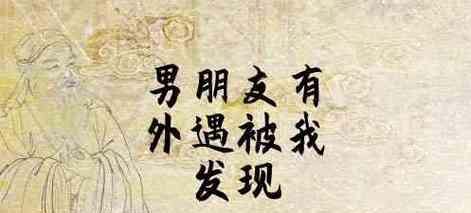 男朋友有
外遇被我
发现